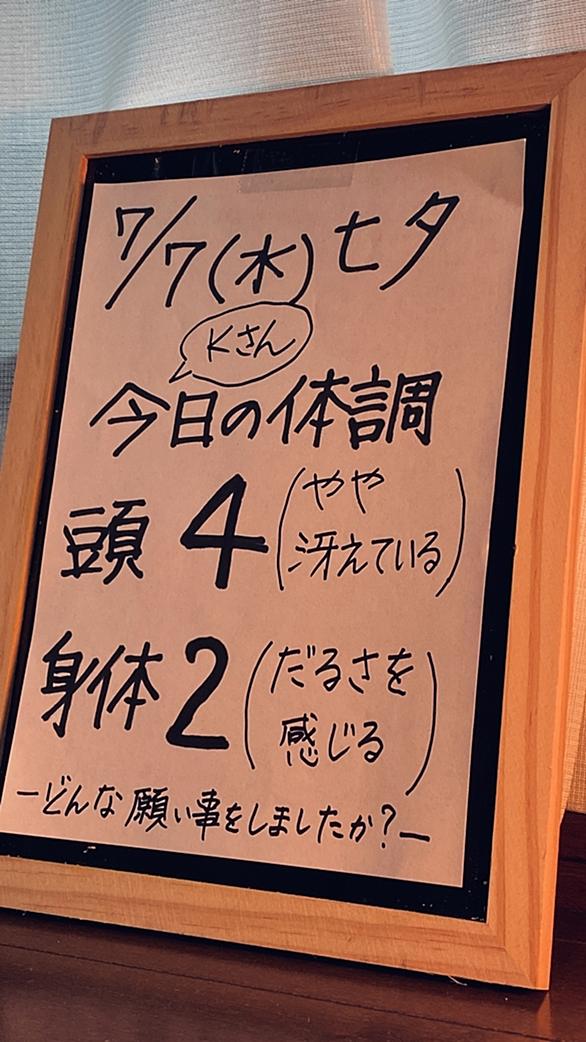 7/7(水)七夕
Kさん
今日の体調
頭 4(やや
冴えている)
身体 2(だるさを
感じる)
ーどんな願い事をしましたか?ー